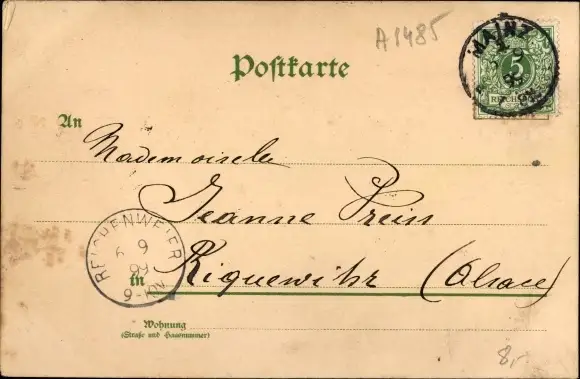 A1485
MAINZ
5
Postkarte
An
Mademoiselle
Jeanne Preiss
REICHENWEIER
6 9
99
9-10V
in Riquewihr (Alsace)
Wohnung
(Straße und Hausnummer)
8,-